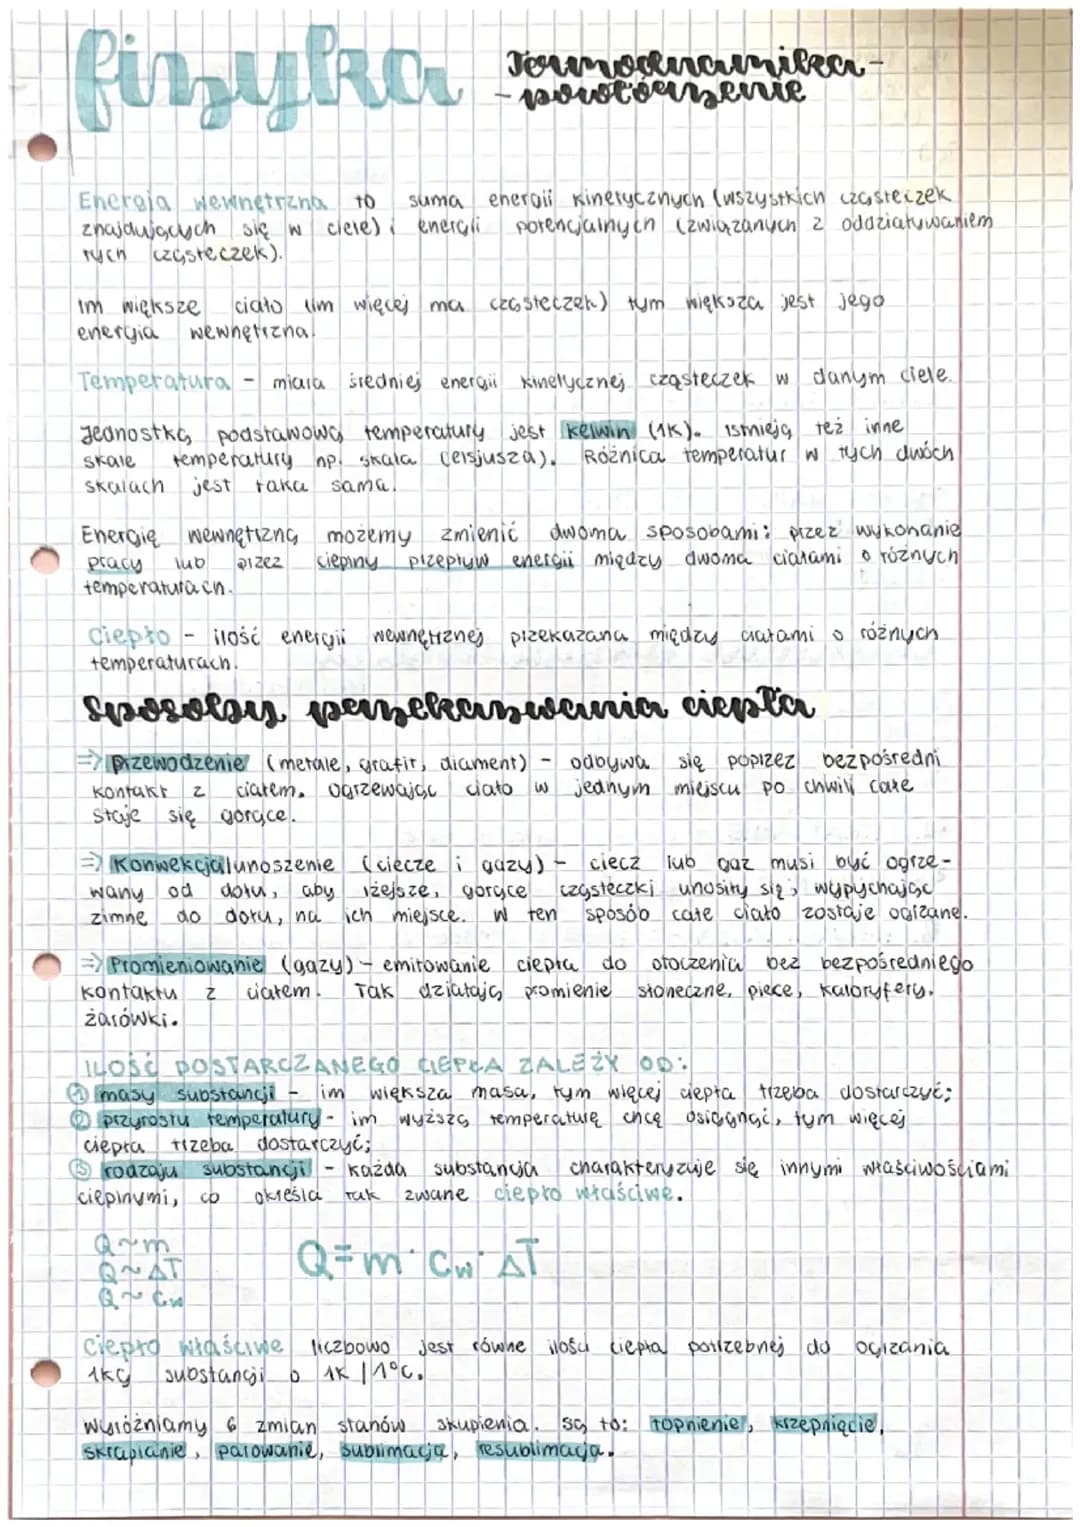 fizyka
Termodynamika-
-powtórzenie
Energia wewnętrzna to suma energii kinetycznych (wszystkich cząsteczek
znajdujących się w ciele) i energii potencjalnych (związanych z oddziaływaniem
tych cząsteczek).
Im większe ciało (im więcej ma cząsteczek) tym większa jest jego
energia wewnętrzna.
Temperatura - miara średniej energii kinetycznej cząsteczek w danym ciele.
Jednostką podstawową temperatury jest kelwin (1K). Istnieją też inne
skale temperatury np. skala Celsjusza). Różnica temperatur w tych dwóch
skalach jest taka sama.
Energię wewnętrzną możemy zmienić dwoma sposobami: przez wykonanie
pracy lub przez cieplny przepływ energii między dwoma ciałami o różnych
temperaturach.
Ciepło - ilość energii wewnętrznej przekazana między ciałami o różnych
temperaturach.
Sposoby przekazywania ciepła
=> przewodzenie (metale, grafit, diament) - odbywa się poprzez bezpośredni
kontakt z ciałem. Ogrzewając ciało w jednym miejscu po chwili całe
staje się gorące.
=> Konwekcja/unoszenie (ciecze i gazy) - ciecz lub gaz musi być ogrze-
wany od dołu, aby lżejsze, gorące cząsteczki unosiły się, wypychając
zimne do dołu, na ich miejsce. W ten sposób całe ciało zostaje ogrzane.
=> Promieniowanie (gazy) - emitowanie ciepła do otoczenia bez bezpośredniego
kontaktu z ciałem. Tak działają promienie słoneczne, piece, kaloryfery,
żarówki.
ILOŚĆ DOSTARCZANEGO CIEPŁA ZALEŻY OD:
① masy substancji - im większa masa, tym więcej ciepła trzeba dostarczyć;
② przyrostu temperatury - im wyższą temperaturę chcę osiągnąć, tym więcej
ciepła trzeba dostarczyć;
③ rodzaju substancji - każda substancja charakteryzuje się innymi właściwościami
cieplnymi, co określa tak zwane ciepło właściwe.
Q~m
Q~ΔT
Q~Cw
Q=m·Cw·ΔT
Ciepło właściwe liczbowo jest równe ilości ciepła potrzebnej do ogrzania
1kg substancji o 1K | 1°C.
Wyróżniamy 6 zmian stanów skupienia. Są to: topnienie, krzepnięcie,
skraplanie, parowanie, sublimacja, resublimacja.